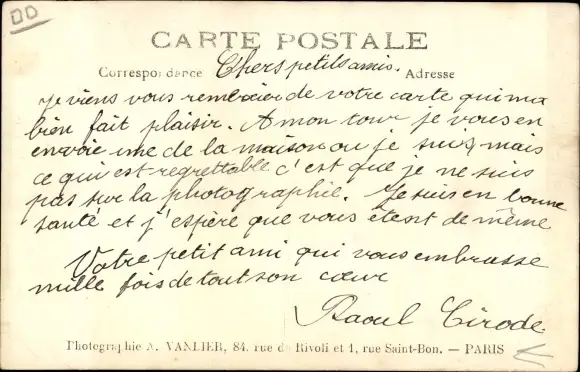 DD
CARTE POSTALE
Correspondance Chers petits amis. Adresse
Je viens vous remercier de votre carte qui m'a
bien fait plaisir. A mon tour je vous en
envoie une de la maison ou je suis, mais
ce qui est regrettable c'est que je ne suis
pas sur la photographie. Je suis en bonne
santé et j'espère que vous êtes de même
Votre petit ami qui vous embrasse
mille fois de tout son cœur
Raoul Cirode
Photographie A. VANLIER, 84, rue de Rivoli et 1, rue Saint-Bon. — PARIS